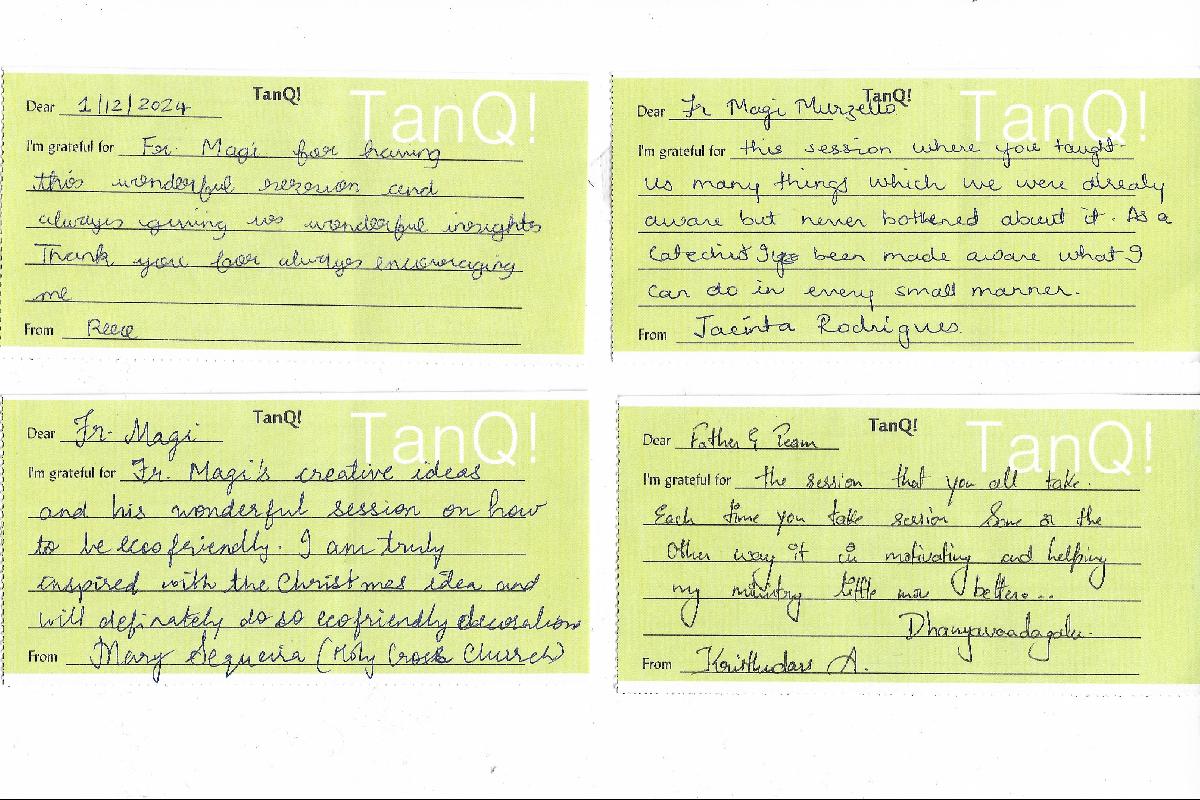 TanQ!
TanQ!
Dear 1/12/2024
I'm grateful for Fr. Magi for having
this wonderful session and
always giving us wonderful insights
Thank you for always encouraging
me
From Reee
TanQ!
TanQ!
Dear Fr Magi Murzello
I'm grateful for this session where you taught
us many things which we were already
aware but never bothered about it. As a
Catechist I've been made aware what I
can do in every small manner.
From Jacinta Rodrigues
TanQ!
TanQ!
Dear Fr. Magi
I'm grateful for Fr. Magi's creative ideas
and his wonderful session on how
to be ecoofriendly. I am truly
inspired with the Christmas idea and
will definately do so ecofriendly decorations
From Mary Sequeira (Holy Cross Church)
TanQ!
TanQ!
Dear Father & Team
I'm grateful for the session that you all take.
Each time you take session Some or the
Other way it is motivating and helping
my ministry little more better...
Dhanyavaadagalu.
From A.